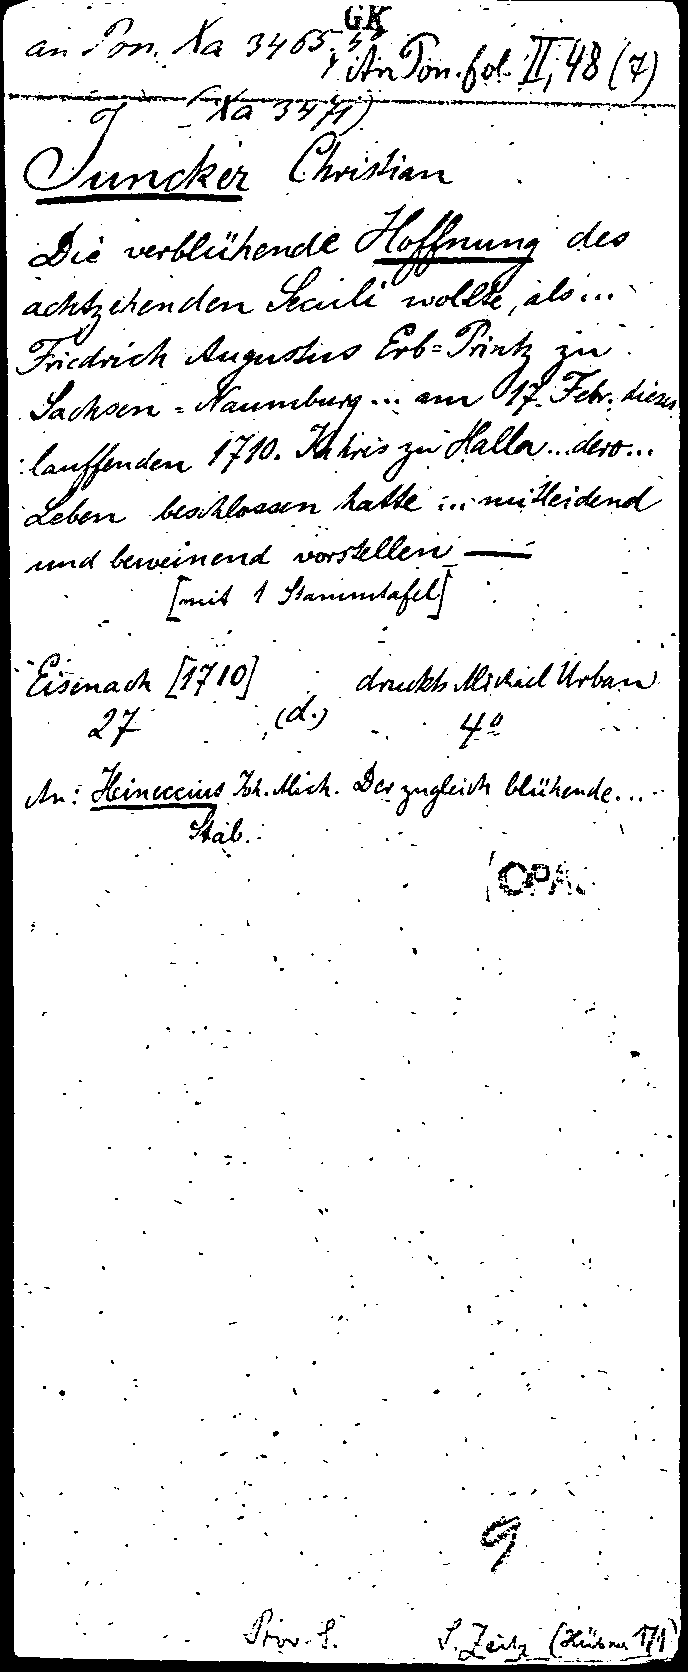 GK
an Pon. Xa 3465, 4° An Pon. fol. II, 48 (7)
(Xa 3471)
Juncker Christian
Die verblühende Hoffnung des
achtzehenden Seculi wollte, als...
Friedrich Augustus Erb=Printz zu
Sachsen=Naumburg... am 17. Febr. dieses
lauffenden 1710. Jahres zu Halla... dero...
Leben beschlossen hatte ... mitleidend
und beweinend vorstellen —
[mit 1 Stammtafel]
Eisenach [1710] druckts Michael Urban
27 (d.) 4°
An: Heineccius Joh. Mich. Der zugleich blühende...
Stab.
OPA
9
Prov. S. S. Zeitz (Hübner 171)